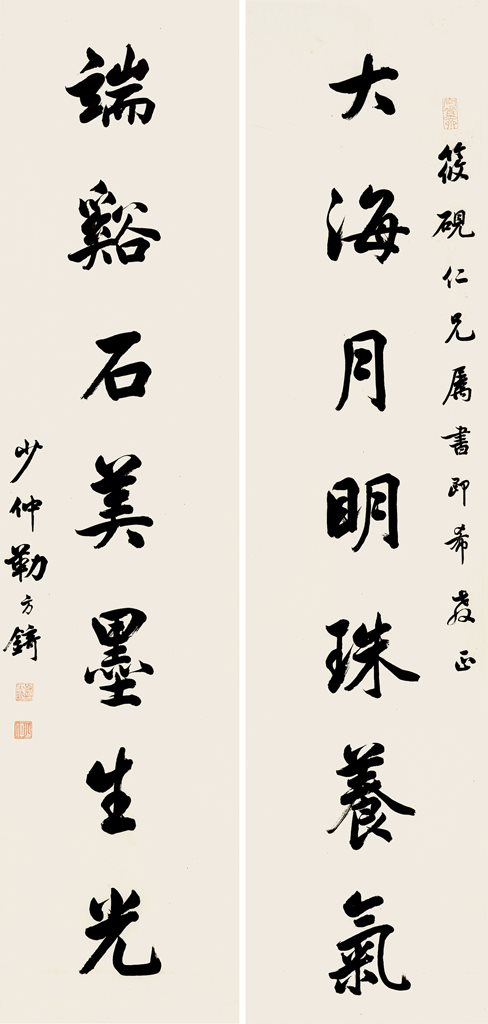 筱硯仁兄属書即希教正
大海月明珠養氣
端谿石美墨生光
少仲勒方錡